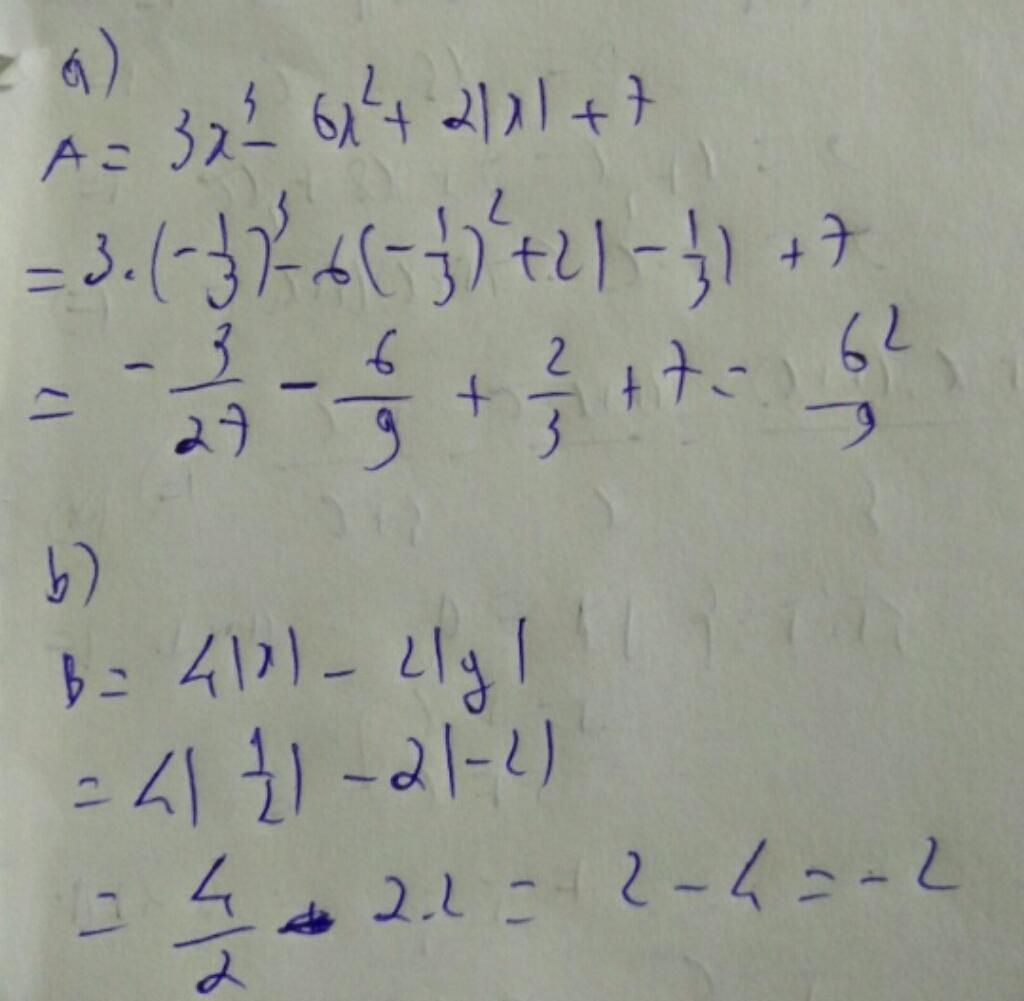 a)
A = 3x³ - 6x² + 2|x| + 7
= 3.(-1/3)³ - 6(-1/3)² + 2|-1/3| + 7
= -3/27 - 6/9 + 2/3 + 7 = 62/9
b)
B = 4|x| - 2|y|
= 4|1/2| - 2|-2|
= 4/2 - 2.2 = 2 - 4 = -2